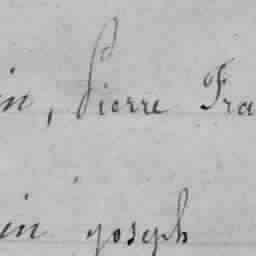 in, Pierre Fra
in joseph